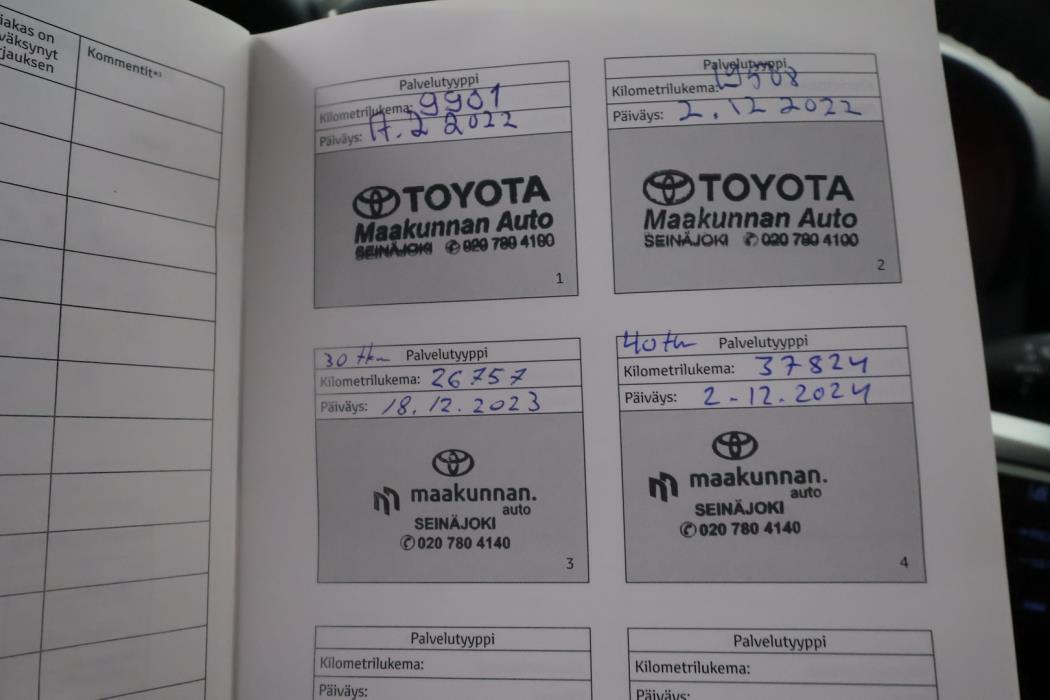 iakas on
väksynyt
jauksen
Kommentit*³
Palvelutyyppi
Kilometrilukema: 9901
Päiväys: 17.2 2022
TOYOTA
Maakunnan Auto
SEINÄJOKI ✆ 020 780 4100
1
Palvelutyyppi
Kilometrilukema: 19508
Päiväys: 2.12 2022
TOYOTA
Maakunnan Auto
SEINÄJOKI ✆ 020 780 4100
2
30 tkm Palvelutyyppi
Kilometrilukema: 26757
Päiväys: 18.12.2023
maakunnan.
auto
SEINÄJOKI
✆ 020 780 4140
3
40 tkm Palvelutyyppi
Kilometrilukema: 37824
Päiväys: 2-12.2024
maakunnan.
auto
SEINÄJOKI
✆ 020 780 4140
4
Palvelutyyppi
Kilometrilukema:
Päiväys:
Palvelutyyppi
Kilometrilukema:
Päiväys: